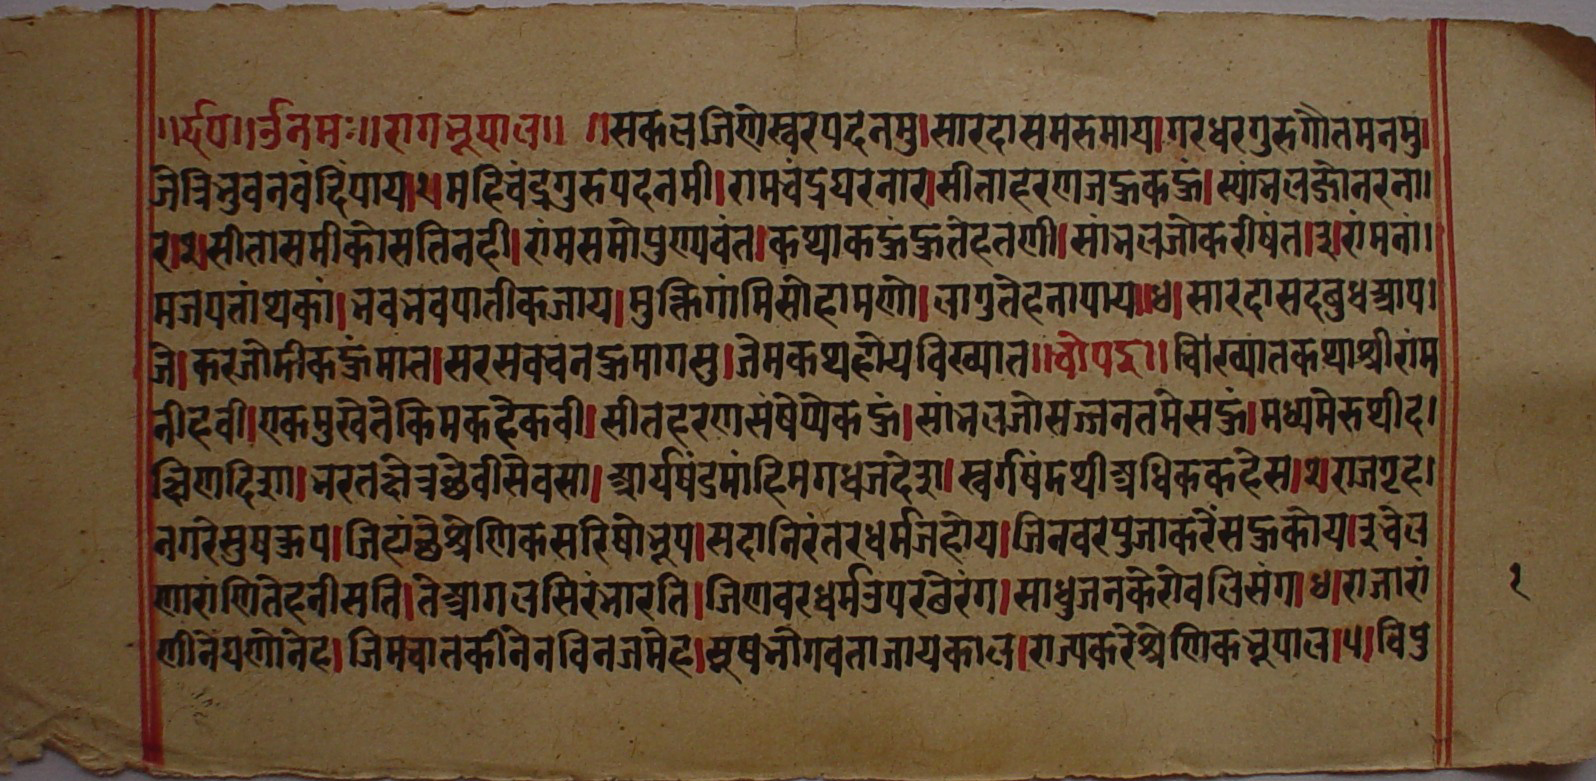 ॥र्द०॥ र्उनमः॥ रागभूपाल॥ ॥सकलजिणेस्वरपदनमु।सारदासमरुमाय।गरधरगुरुगौतमनमु।
जेत्रिभुवनवंदिंपाय।१।महिचंद्रगुरुपदनमी।रामचंद्रघरनार।सीताहरणजहुकहुं।स्यांभलज्योनरना॥
र।२।सीतासमीकोसतिनही।रांमसमोपुण्यवंत।कथाकहुंहुतेहतणी।सांभलजोकरीषंत।३।रांमनां।
मजपतांथकां।भवभवपातीकजाय।मुक्तिगांमिसोहामणो।लागुतेहनापाय।४।सारदासदबुधआप।
जे।करजोमीकहुंमात।सरसवचनहुमागसु।जेमकथहोयविख्यात॥चोपइ॥विख्यांतकथाश्रीरांम
नीहवी।एकमुखेतेकिमकहेकवी।सीतहरणसंषेप्येकहुं।सांभलजोसज्जनतमेसहुं।मध्यमेरुथीद।
ख्यिणदिशा।भरतक्षेत्रछेवीसेवसा।आर्यषंडमांहिमगधजदेश।स्वर्गषंमथीअधिककहेस।२।राजगृह।
नगरेसुषरूप।जिहांछेश्रेणिकसरिषोभूप।सदानिरंतरधर्मजहोय।जिनवरपुजाकरेंसहुकोय।३।चेल
णारांणितेहनीसति।तेआगलसिरंभारति।जिणवरधर्मउपरबेरंग।साधुजनकेरोवलिसंग।४।राजारां
णीनेघणोनेह।जिमचातकीनेनविनजमेह।सूषभोगवताजायकाल।राज्यकरेश्रेणिकभूपाल।५।विपु
१